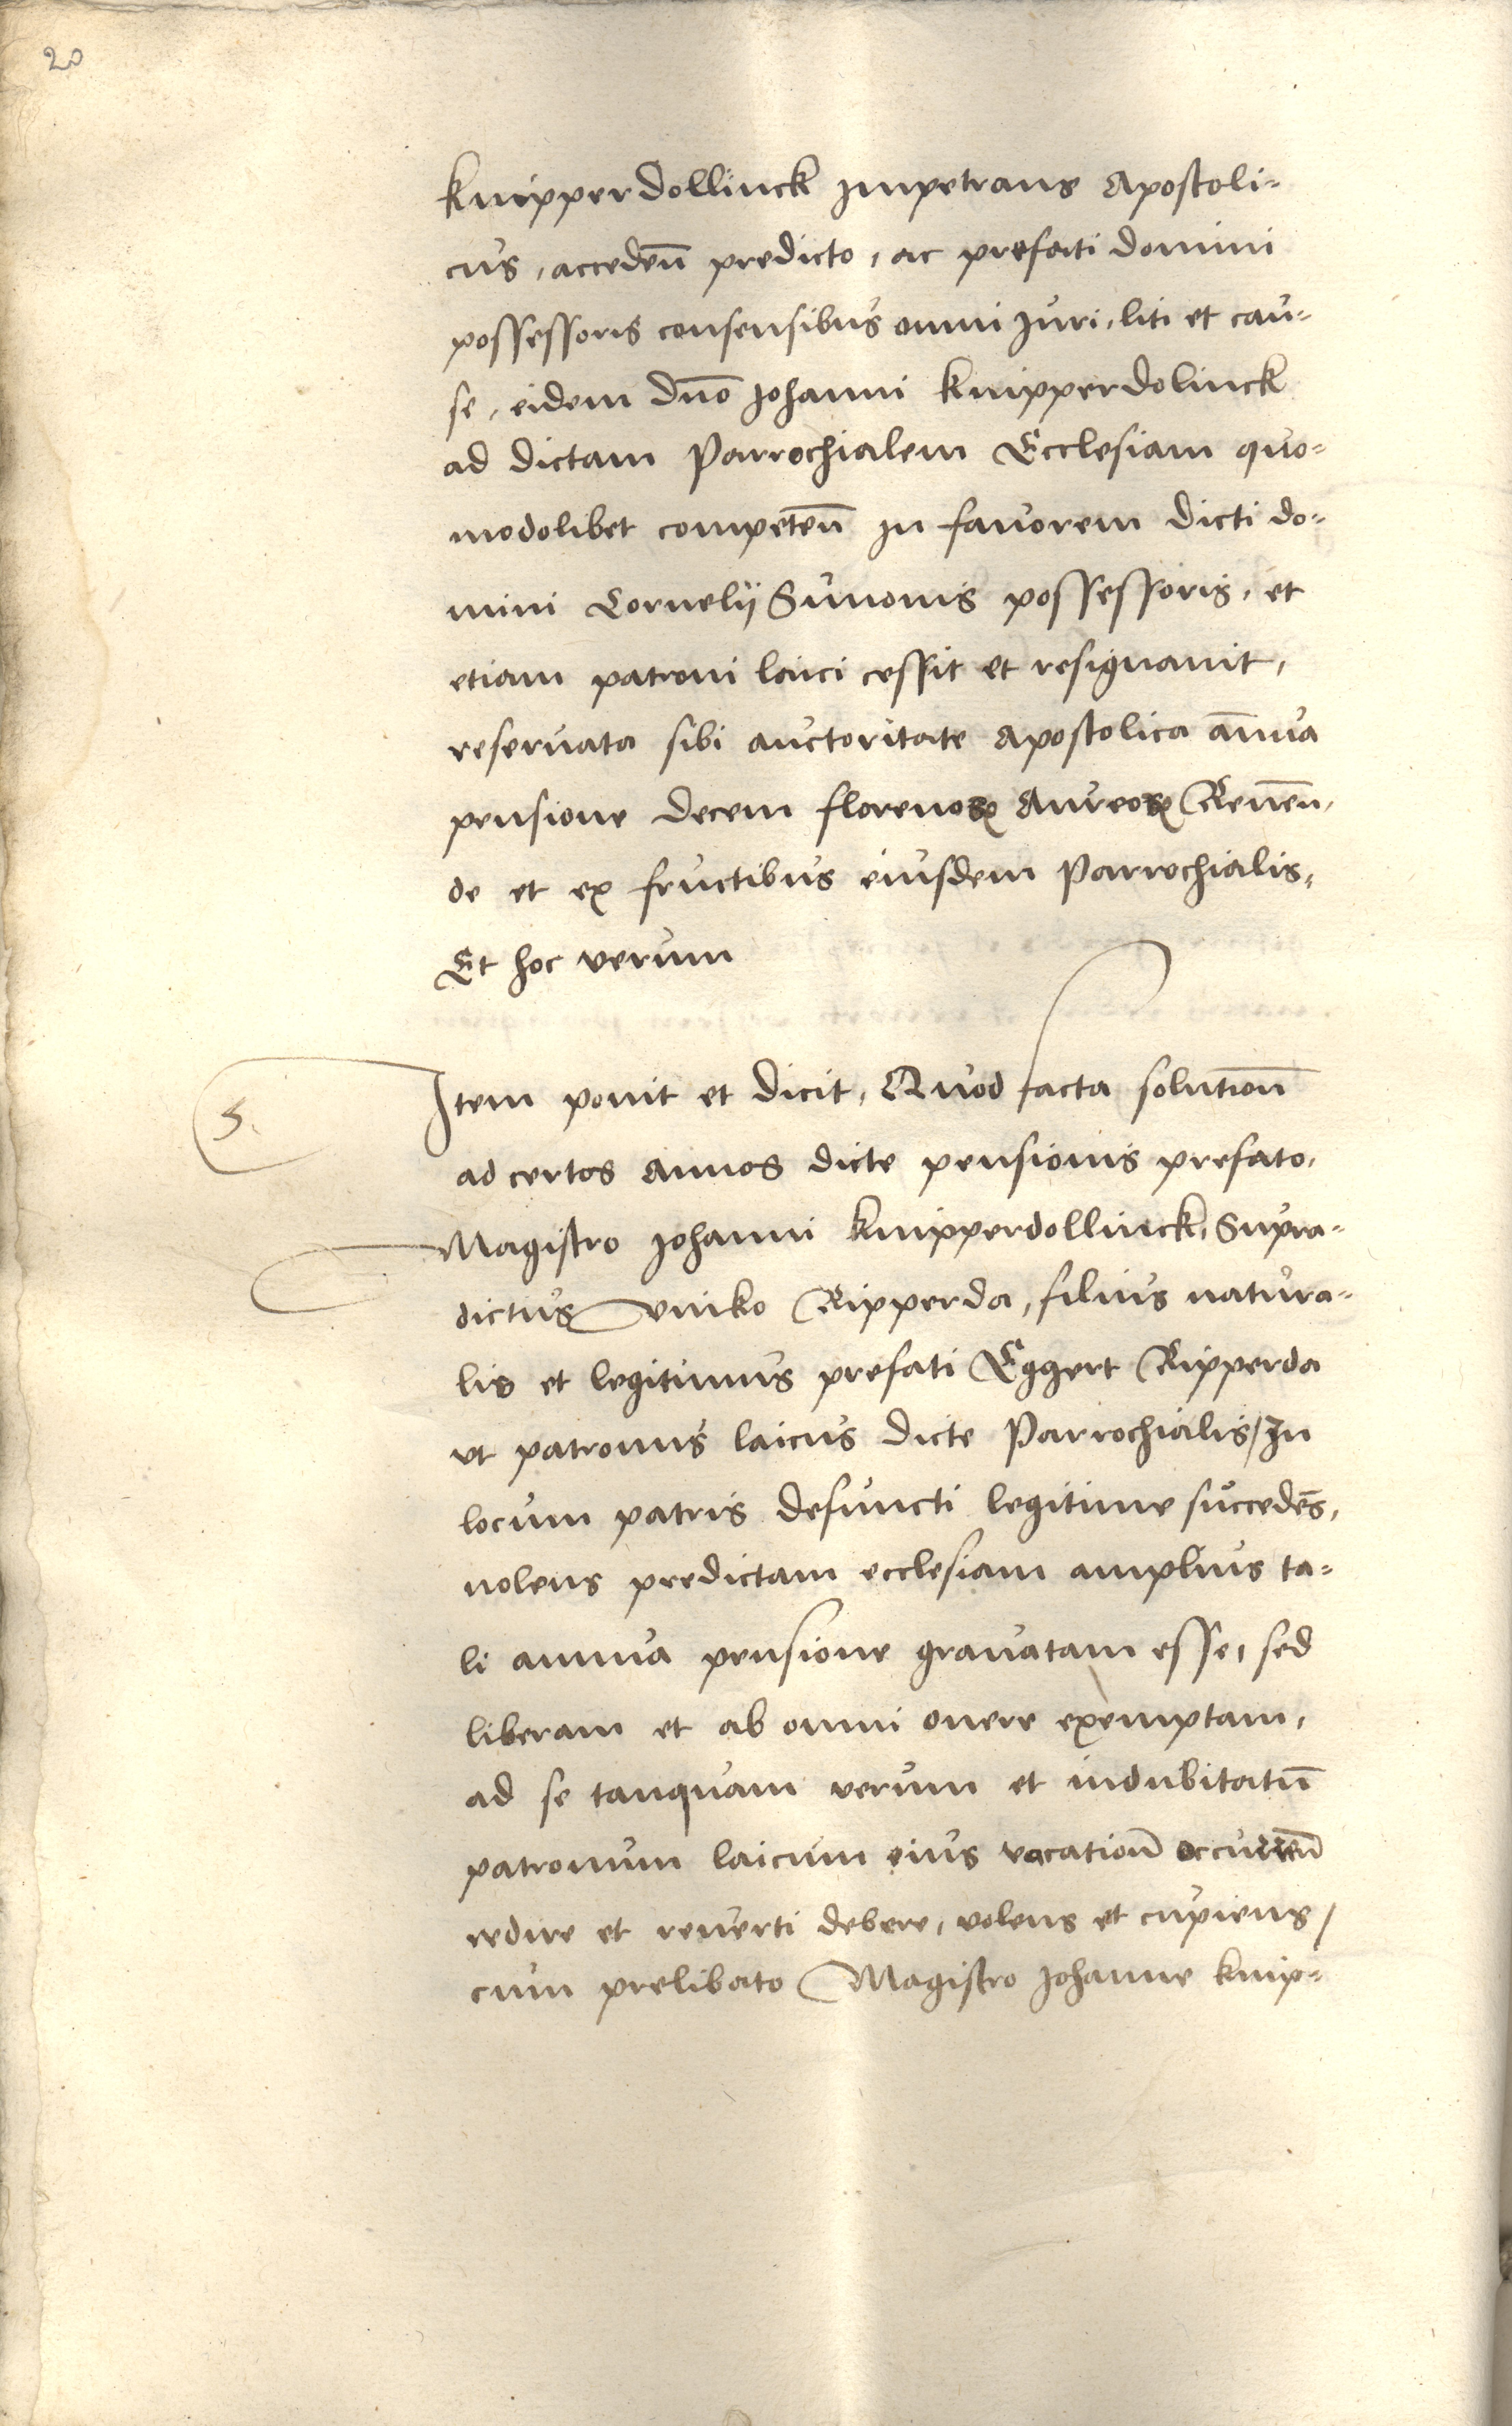 20
Knipperdollinck Impetrans Apostoli=
cus, acceden̄ predicto, ac prefati domini
possessoris consensibus omni Juri, liti et cau=
se, eidem dn̄o Johanni Knipperdolinck
ad dictam Parrochialem Ecclesiam quo=
modolibet competen̄ in favorem dicti do=
mini Cornelij Simonis possessoris, et
etiam patroni laici cessit et resignauit,
reseruata sibi auctoritate Apostolica an̄ua
pensione decem florenoꝝ Aureoꝝ Renen̄,
de et ex fructibus eiusdem Parrochialis,
Et hoc verum
5.
Item ponit et dicit, Quod facta solution̄
ad certos Annos dicte pensionis prefato,
Magistro Johanni Knipperdollinck, Supra=
dictus Vniko Ripperda, filius natura=
lis et legitimus prefati Eggert Ripperda
vt patronus laicus dicte Parrochialis/ In
locum patris defuncti legitime succedēs,
nolens predictam ecclesiam amplius ta=
li annua pensione grauatam esse, sed
liberam et ab omni onere exemptam,
ad se tanquam verum et indubitatū
patronum laicum eius vacation̄ occurren̄
redire et reuerti debere, volens et cupiens/
cum prelibato Magistro Johanne Knip=